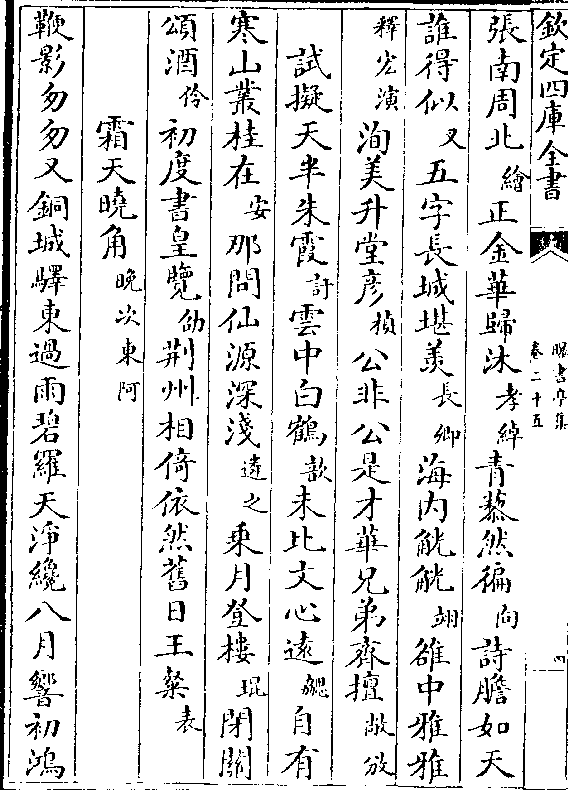 欽定四庫全書
曝書亭集
卷二十五
張南周北繪正金華歸沐孝綽青藜然徧向詩膽如天
誰得似叉五字長城堪羨長卿海内觥觥翊雒中雅雅
釋宏演洵美升堂彦楨公非公是才華兄弟齊擅敞攽
試擬天半朱霞訏雲中白鶴歊未比文心遠勰自有
寒山叢桂在安那問仙源深淺逺之乗月登樓琨閉關
頌酒伶初度書皇覽劭荆州相倚依然舊日王粲表
霜天曉角晚次東阿
鞭影匆匆又銅城驛東過雨碧羅天浄纔八月響初鴻